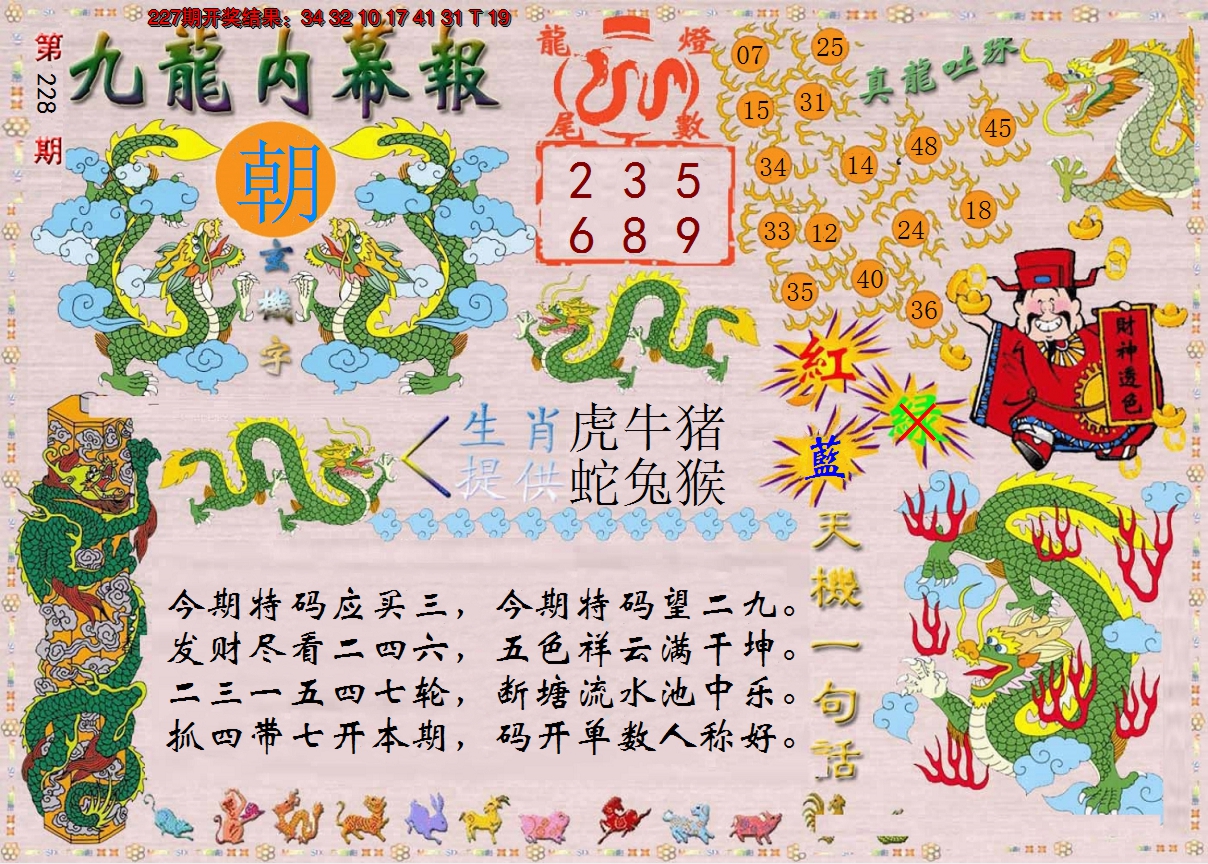 227期开奖结果：34 32 10 17 41 31 T 19
第228期
九龍内幕報
朝
玄機字
龍燈尾數
2 3 5
6 8 9
真龍吐珠
07 25
15 31
34 14 48 45
33 12 24 18
35 40 36
財神透色
紅
绿
藍
生肖 虎牛猪
提供 蛇兔猴
天機一句話
今期特码应买三，今期特码望二九。
发财尽看二四六，五色祥云满干坤。
二三一五四七轮，断塘流水池中乐。
抓四带七开本期，码开单数人称好。